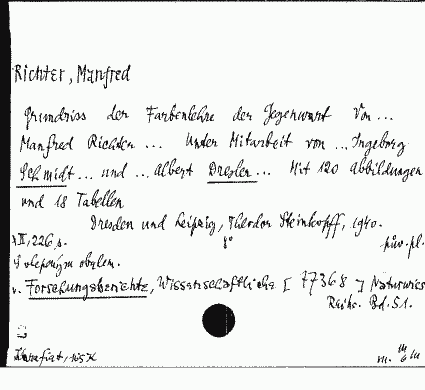 Richter, Manfred
Grundriss der Farbenlehre der Gegenwart Von ...
Manfred Richter ... Unter Mitarbeit von ... Ingeborg
Schmidt ... und ... Albert Dresler ... Mit 120 Abbildungen
und 18 Tabellen
Dresden und Leipzig, Theodor Steinkopff, 1940.
XII, 226, s. 8°
v. Forschungsberichte, Wissenschaftliche [77368] Naturwiss
Reihe. Bd. 51.